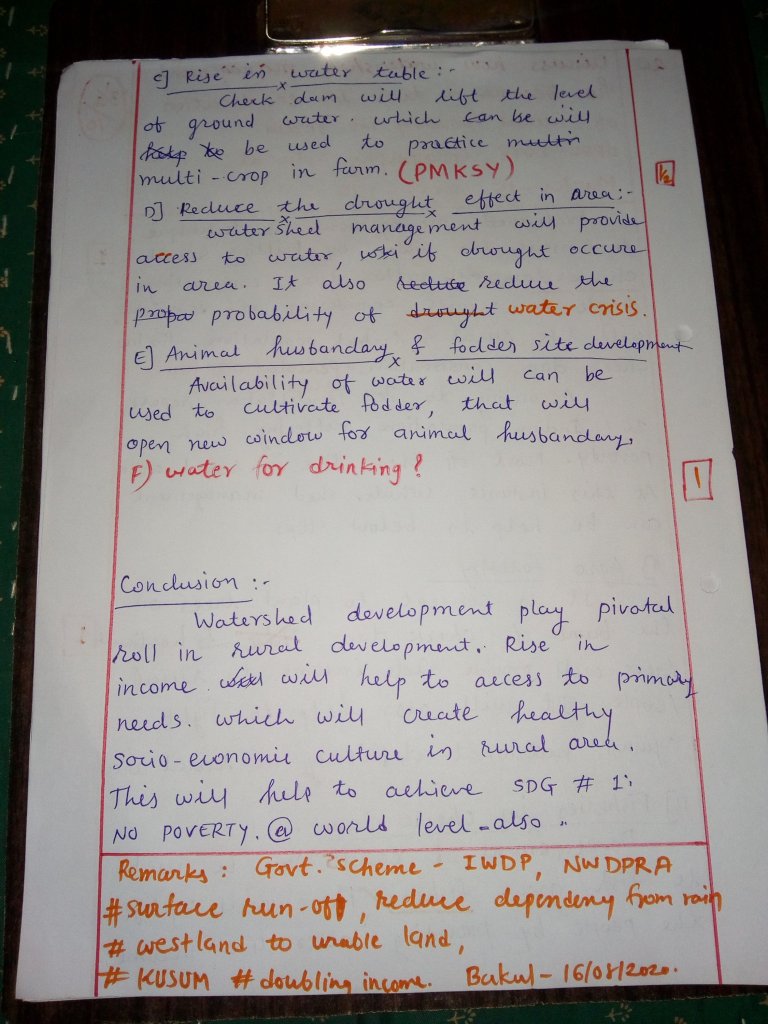 C] Rise in water table :-
Check dam will lift the level
of ground water. which can be will
help to be used to practice multi
multi-crop in farm. (PMKSY)
1/2
D] Reduce the drought effect in area:-
watershed management will provide
access to water, if drought occure
in area. It also reduce reduce the
propa probability of drought water crisis.
E] Animal husbandary & fodder site development
Availability of water will can be
used to cultivate fodder, that will
open new window for animal husbandary.
F) water for drinking?
1
Conclusion :-
Watershed development play pivotal
roll in rural development. Rise in
income will help to access to primary
needs. which will create healthy
socio-economic culture in rural area.
This will help to achieve SDG # 1:
NO POVERTY. @ world level also ..
Remarks : Govt. scheme - IWDP, NWDPRA
# surface run-off, reduce dependency from rain
# westland to urable land,
# KUSUM # doubling income. Bakul - 16/08/2020.